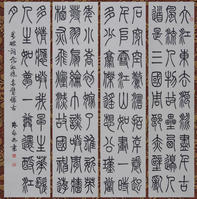 大江東去浪淘盡千古
風流人物故壘西邊人
道是三國周郎赤壁亂
石穿空驚濤拍岸捲起
千堆雪江山如畫一時
多少豪傑遙想公瑾當
年小喬初嫁了雄姿英
發羽扇綸巾談笑間
灰飛煙滅故國神遊
多情應笑我早生華髮
人生如夢一尊還酹江
月
東坡詞念奴嬌赤壁懷古